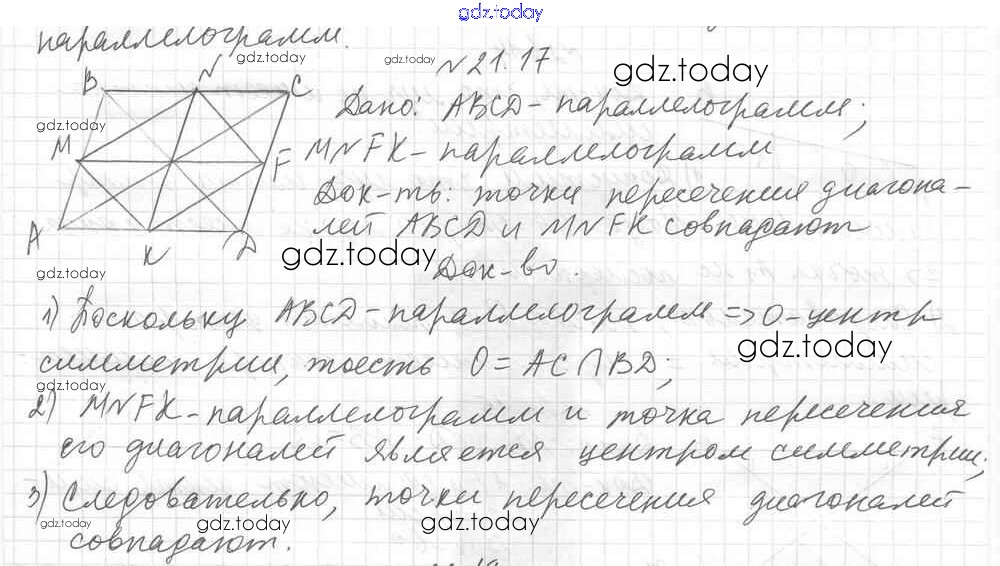 gdz.today
параллелограмм.
gdz.today
gdz.today
№21.17
gdz.today
B N C
Дано: ABCD-параллелограмм;
gdz.today
M F
MNFK-параллелограмм
Док-ть: точки пересечения диагона-
A K D
лей ABCD и MNFK совпадают
gdz.today
Док-во.
gdz.today
1) Поскольку ABCD-параллелограмм => O-центр
gdz.today
симметрии, тоесть O = AC∩BD;
gdz.today
2) MNFK-параллелограмм и точка пересечения
его диагоналей является центром симметрии;
3) Следовательно, точки пересечения диагоналей
gdz.today
gdz.today
gdz.today
gdz.today
совпадают.